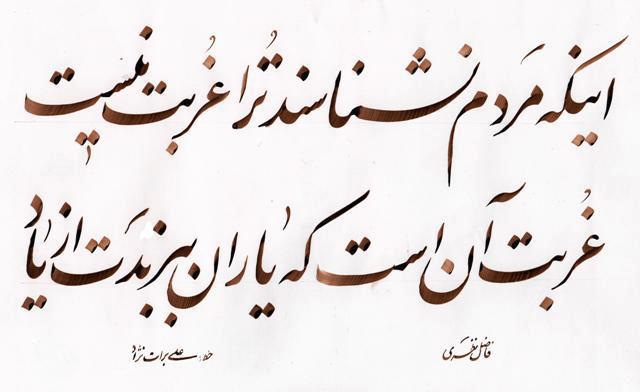 اینکه مردم نشناسند تُرا غُربت نیست
غُربت آن است که یاران ببرندَت از یاد
فاضل نظری
خط: علی برات نژاد